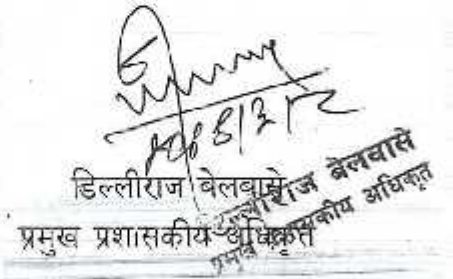 डिल्लीराज बेलबासे
प्रमुख प्रशासकीय अधिकृत
डिल्लीराज बेलबासे
प्रमुख प्रशासकीय अधिकृत